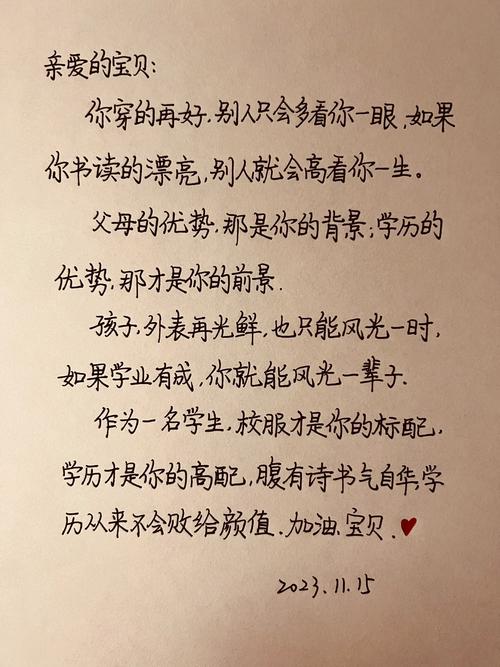 亲爱的宝贝:
你穿的再好,别人只会多看你一眼,如果
你书读的漂亮,别人就会高看你一生。
父母的优势,那是你的背景;学历的
优势,那才是你的前景.
孩子,外表再光鲜,也只能风光一时,
如果学业有成,你就能风光一辈子.
作为一名学生,校服才是你的标配,
学历才是你的高配,腹有诗书气自华,学
历从来不会败给颜值.加油、宝贝.♥
2023.11.15